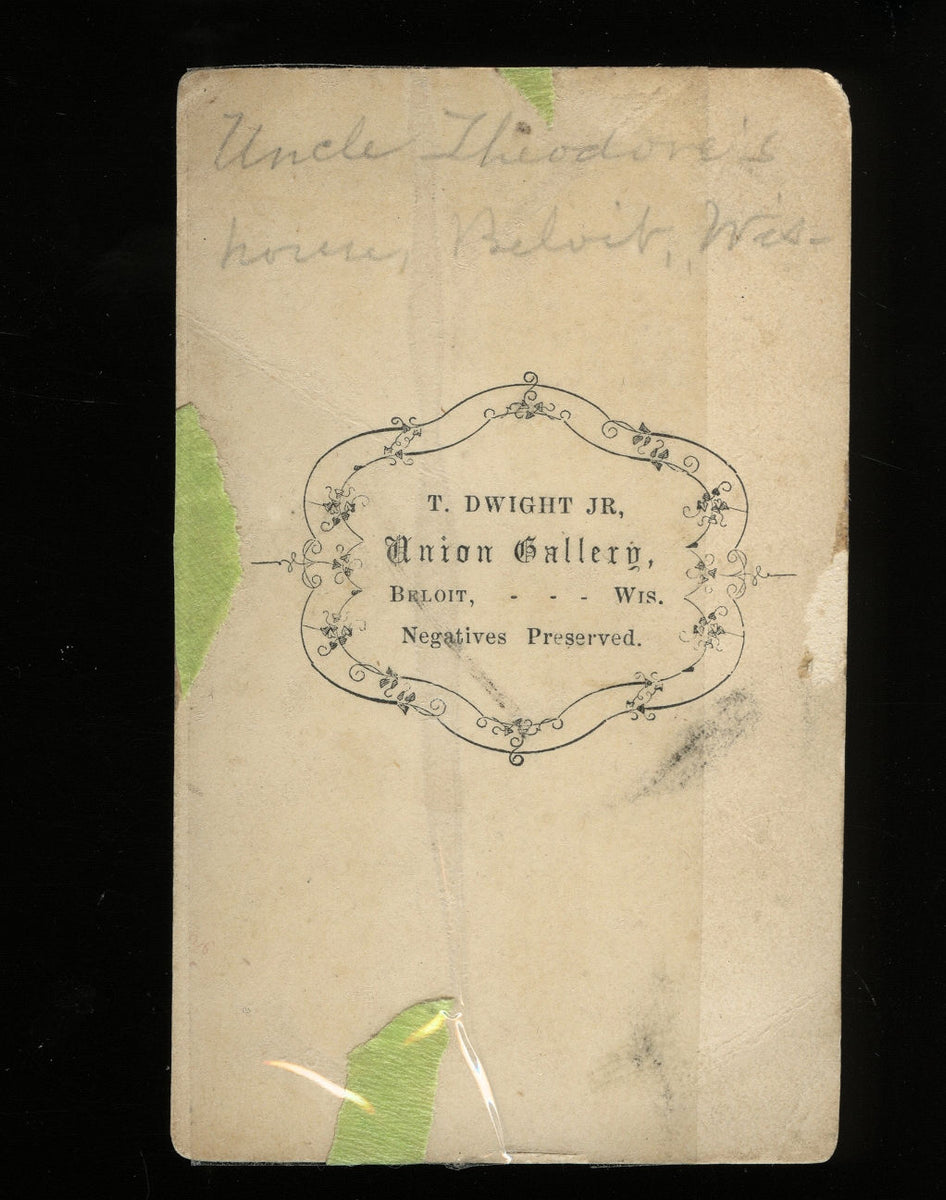 Uncle Theodore's
house, Beloit, Wis-
T. DWIGHT JR,
Union Gallery,
BELOIT, - - - WIS.
Negatives Preserved.